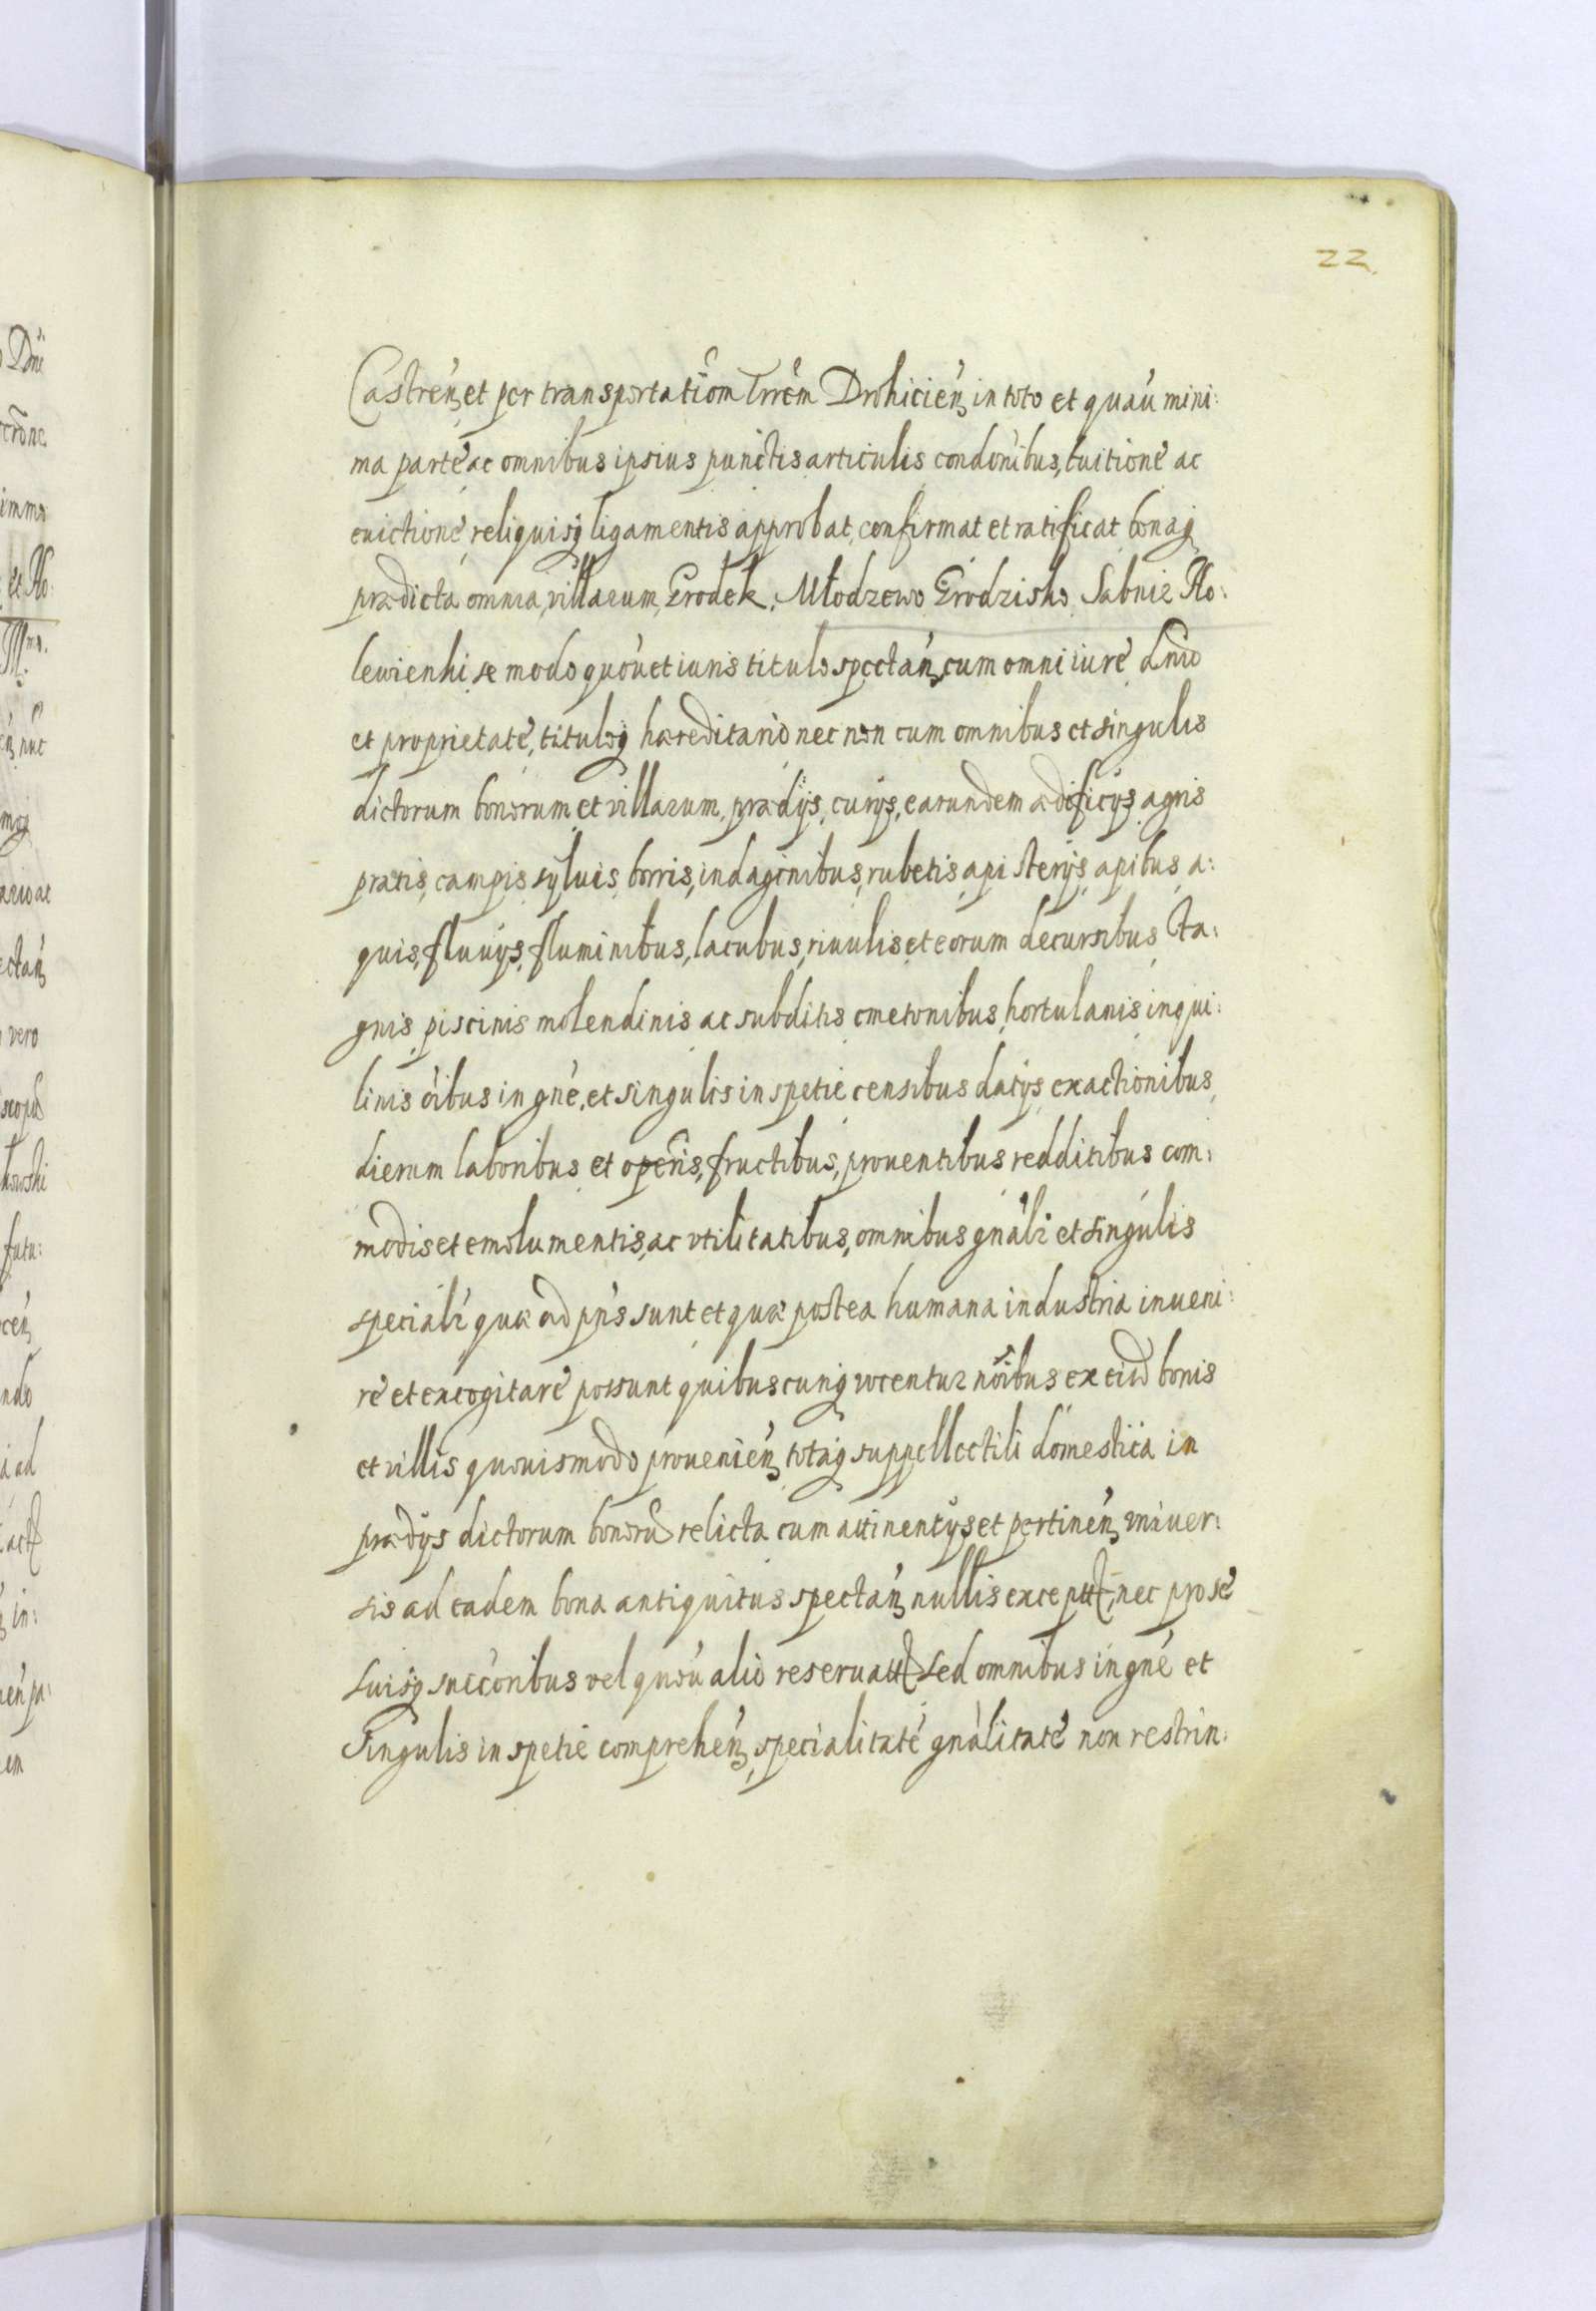 22
Castren̄ et per transportatiōm Trrēm Drohicień in toto et quaú mini:
ma parte ac omnibus ipsius punctis articulis condōnibus, tuitione ac
euictione reliquisq ligamentis approbat, confirmat et ratificat bonaq
prædicta omnia, villarum, Grodek, Młodzewo Grodzisko Sabnie Ho:
lewienki se modo quóuet iuris titulo spectań, cum omni iure dnio
et proprietate, tituloq hæreditario nec non cum omnibus et singulis
dictorum bonorum et villarum, prædijs, curijs, earundem ædificijs agris
pratis, campis, syluis, borris, indaginibus, rubetis, apisterijs, apibus, a:
quis, fluuijs, fluminibus, lacubus, riuulis et eorum decursibus, sta:
gnis, piscinis molendinis ac subditis cmetonibus, hortulanis, inqui:
linis óibus in gńe, et singulis in spetie censibus datijs exactionibus,
dierum laboribus et operis, fructibus, prouentibus redditibus com:
modis et emolumentis, ac vtilitatibus, omnibus gnałr et singulis
speciałr quæ ad pńs sunt et quæ postea humana industria inueni:
re et excogitare possunt quibuscunq vocentur nōibus ex eisd bonis
et villis quouismodo prouenień, totaq suppellectili domestica in
prædijs dictorum bonoru relicta cum attinentijs et pertineń, vniuer:
sis ad eadem bona antiquitus spectań, nullis except, nec pro se
suisq succoribus vel quoú alio reseruat sed omnibus in gńe et
Singulis in spetie compreheń, specialitate gnálitate non restrin: